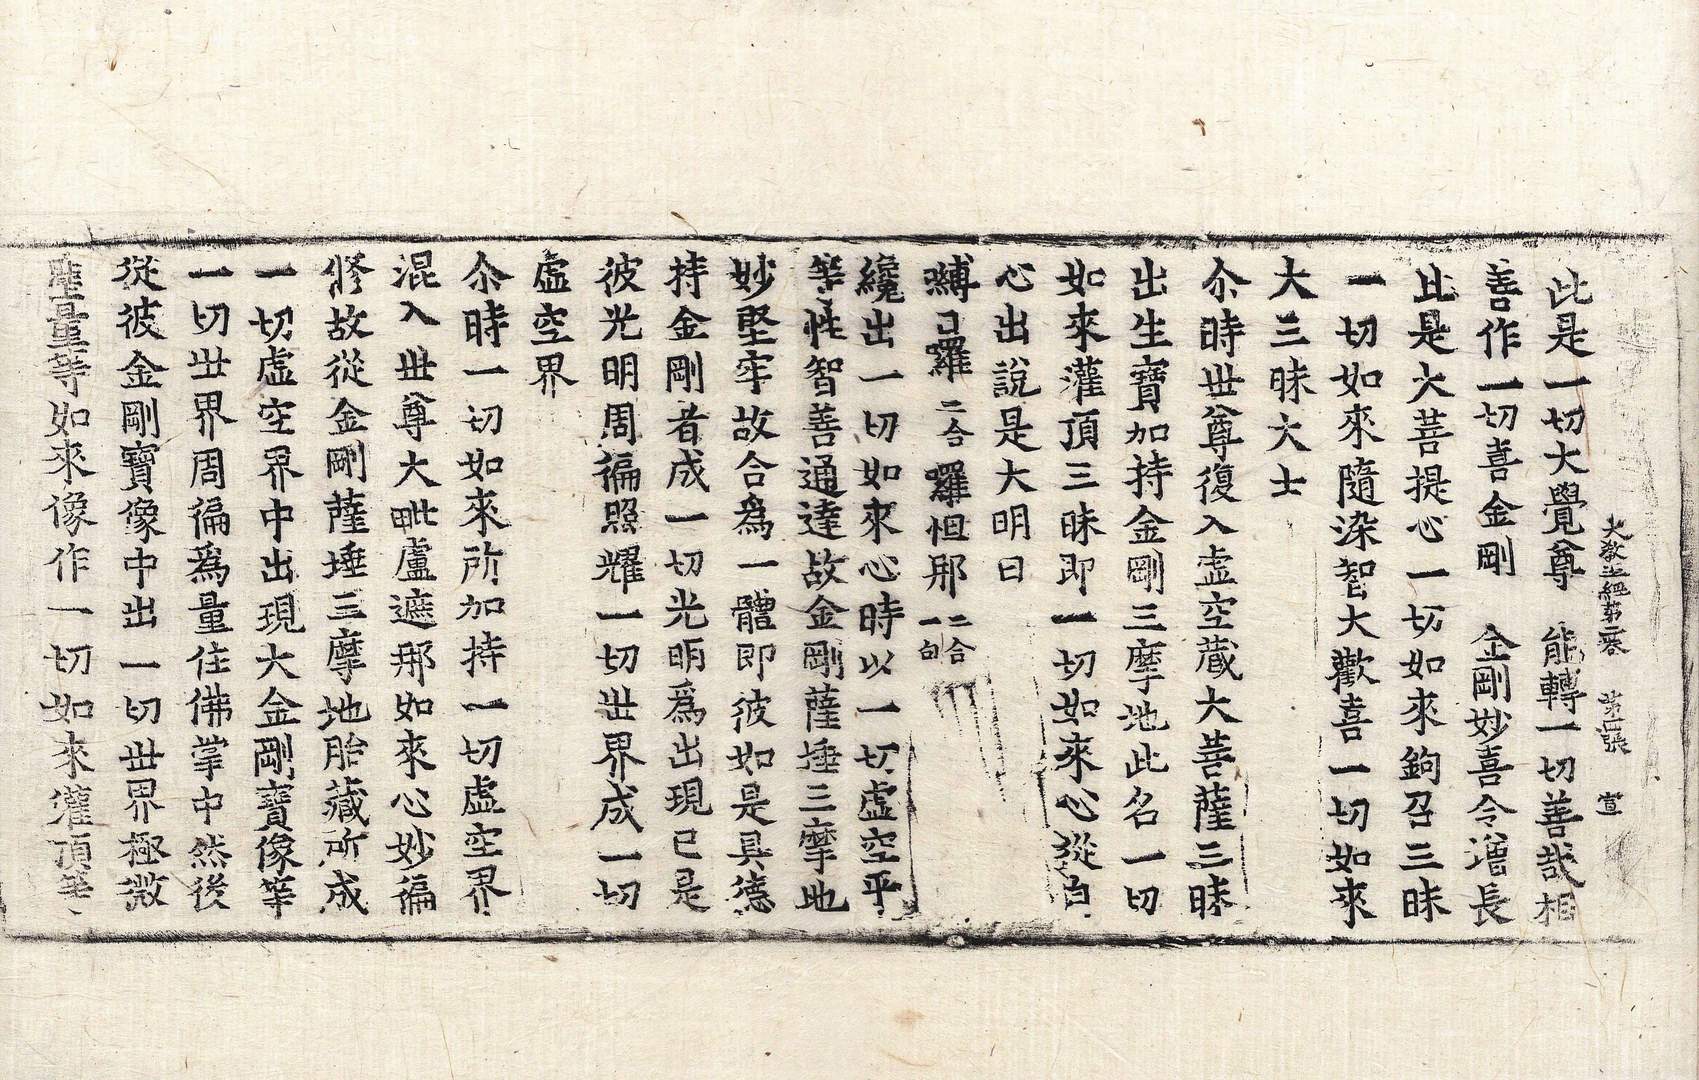 大教王經第二卷　第二張　宣
此是一切大覺尊　能轉一切善哉相
善作一切喜金剛　金剛妙喜令增長
此是大菩提心一切如來鉤召三昧
一切如來隨染智大歡喜一切如來
大三昧大士
尒時世尊復入虛空藏大菩薩三昧
出生寶加持金剛三摩地此名一切
如來灌頂三昧即一切如來心從自
心出說是大明曰
嚩日囉二合囉怛那二合一句
纔出一切如來心時以一切虛空平
等性智善通達故金剛薩埵三摩地
妙堅牢故合爲一體即彼如是具德
持金剛者成一切光明爲出現已是
彼光明周徧照耀一切世界成一切
虛空界
尒時一切如來所加持一切虛空界
混入世尊大毗盧遮那如來心妙徧
修故從金剛薩埵三摩地胎藏所成
一切虛空界中出現大金剛寶像等
一切世界周徧爲量住佛掌中然後
從彼金剛寶像中出一切世界極微
塵量等如來像作一切如來灌頂等